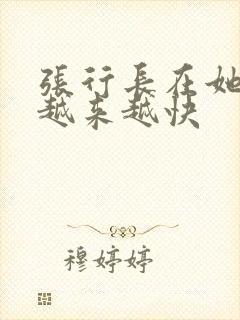 張行長在她
越來越快
穆婷婷